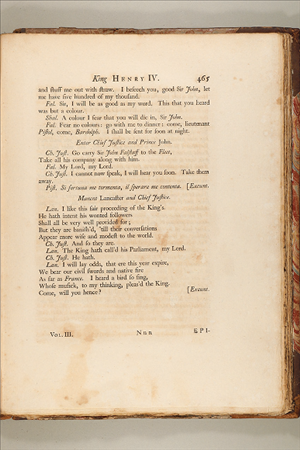 King HENRY IV. 465
and stuff me out with straw. I beseech you, good Sir John, let
me have five hundred of my thousand.
Fal. Sir, I will be as good as my word. This that you heard
was but a colour.
Shal. A colour I fear that you will die in, Sir John.
Fal. Fear no colours: go with me to dinner: come, lieutenant
Pistol, come, Bardolph. I shall be sent for soon at night.
Enter Chief Justice and Prince John.
Ch. Just. Go carry Sir John Falstaff to the Fleet,
Take all his company along with him.
Fal. My Lord, my Lord.
Ch. Just. I cannot now speak, I will hear you soon. Take them
away.
Pist. Si fortuna me tormenta, il sperare me contenta. [Exeunt.
Manent Lancaster and Chief Justice.
Lan. I like this fair proceeding of the King's.
He hath intent his wonted followers
Shall all be very well provided for;
But they are banish'd, 'till their conversations
Appear more wise and modest to the world.
Ch. Just. And so they are.
Lan. The King hath call'd his Parliament, my Lord.
Ch. Just. He hath.
Lan. I will lay odds, that ere this year expire,
We bear our civil swords and native fire
As far as France. I heard a bird so sing,
Whose musick, to my thinking, pleas'd the King.
Come, will you hence? [Exeunt.
VOL. III. Nnn EPI-